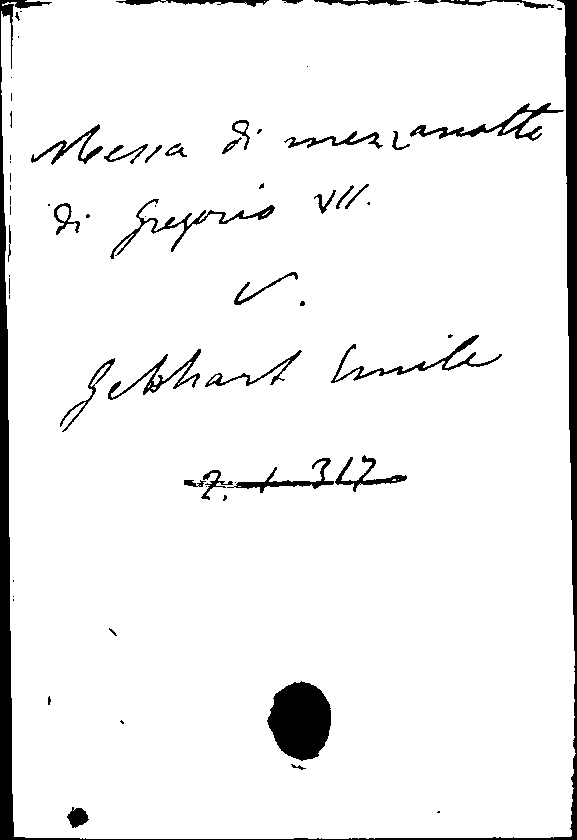 Messa di mezzanotte
di Gregorio VII.
V.
Gebhart Emile
2. 1 317